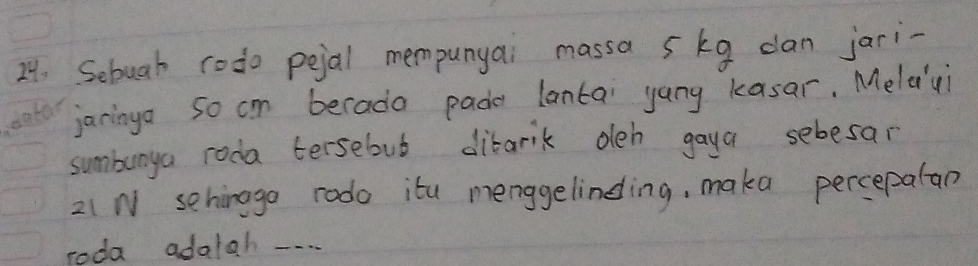 24. Sebuah roda pejal mempunyai massa 5 kg dan jari-
jarinya 50 cm berada pada lantai yang kasar. Melalui
sumbunya roda tersebut ditarik oleh gaya sebesar
21 N sehingga roda itu menggelinding, maka percepatan
roda adalah ----